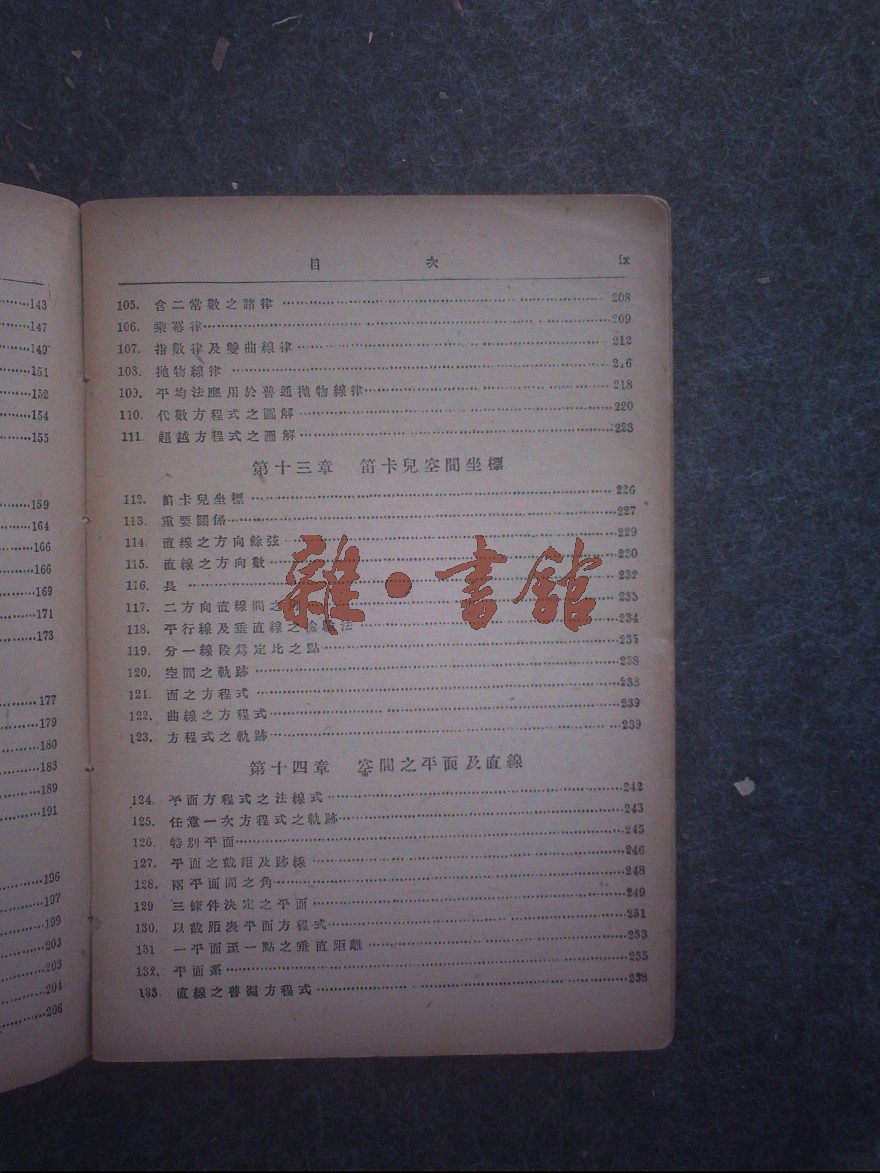 143
147
149
151
152
154
155
159
164
166
166
169
171
173
177
179
180
183
189
191
196
197
199
203
203
204
206
目 次 ix
105. 含二常數之諸律 208
106. 乘冪律 209
107. 指數律及雙曲線律 212
108. 拋物線律 216
109. 平均法應用於普通拋物線律 218
110. 代數方程式之圖解 220
111. 超越方程式之圖解 223
第十三章 笛卡兒空間坐標
112. 笛卡兒坐標 226
113. 重要關係 227
114. 直線之方向餘弦 229
115. 直線之方向數 230
116. 長 232
117. 二方向直線間之角 233
118. 平行線及垂直線之檢驗法 234
119. 分一線段爲定比之點 235
120. 空間之軌跡 238
121. 面之方程式 238
122. 曲線之方程式 239
123. 方程式之軌跡 239
雜·書館
第十四章 空間之平面及直線
124. 平面方程式之法線式 242
125. 任意一次方程式之軌跡 243
126. 特別平面 245
127. 平面之截距及跡線 246
128. 兩平面間之角 248
129 三條件決定之平面 249
130. 以截距表平面方程式 251
131 一平面至一點之垂直距離 253
132. 平面系 255
133. 直線之普遍方程式 258